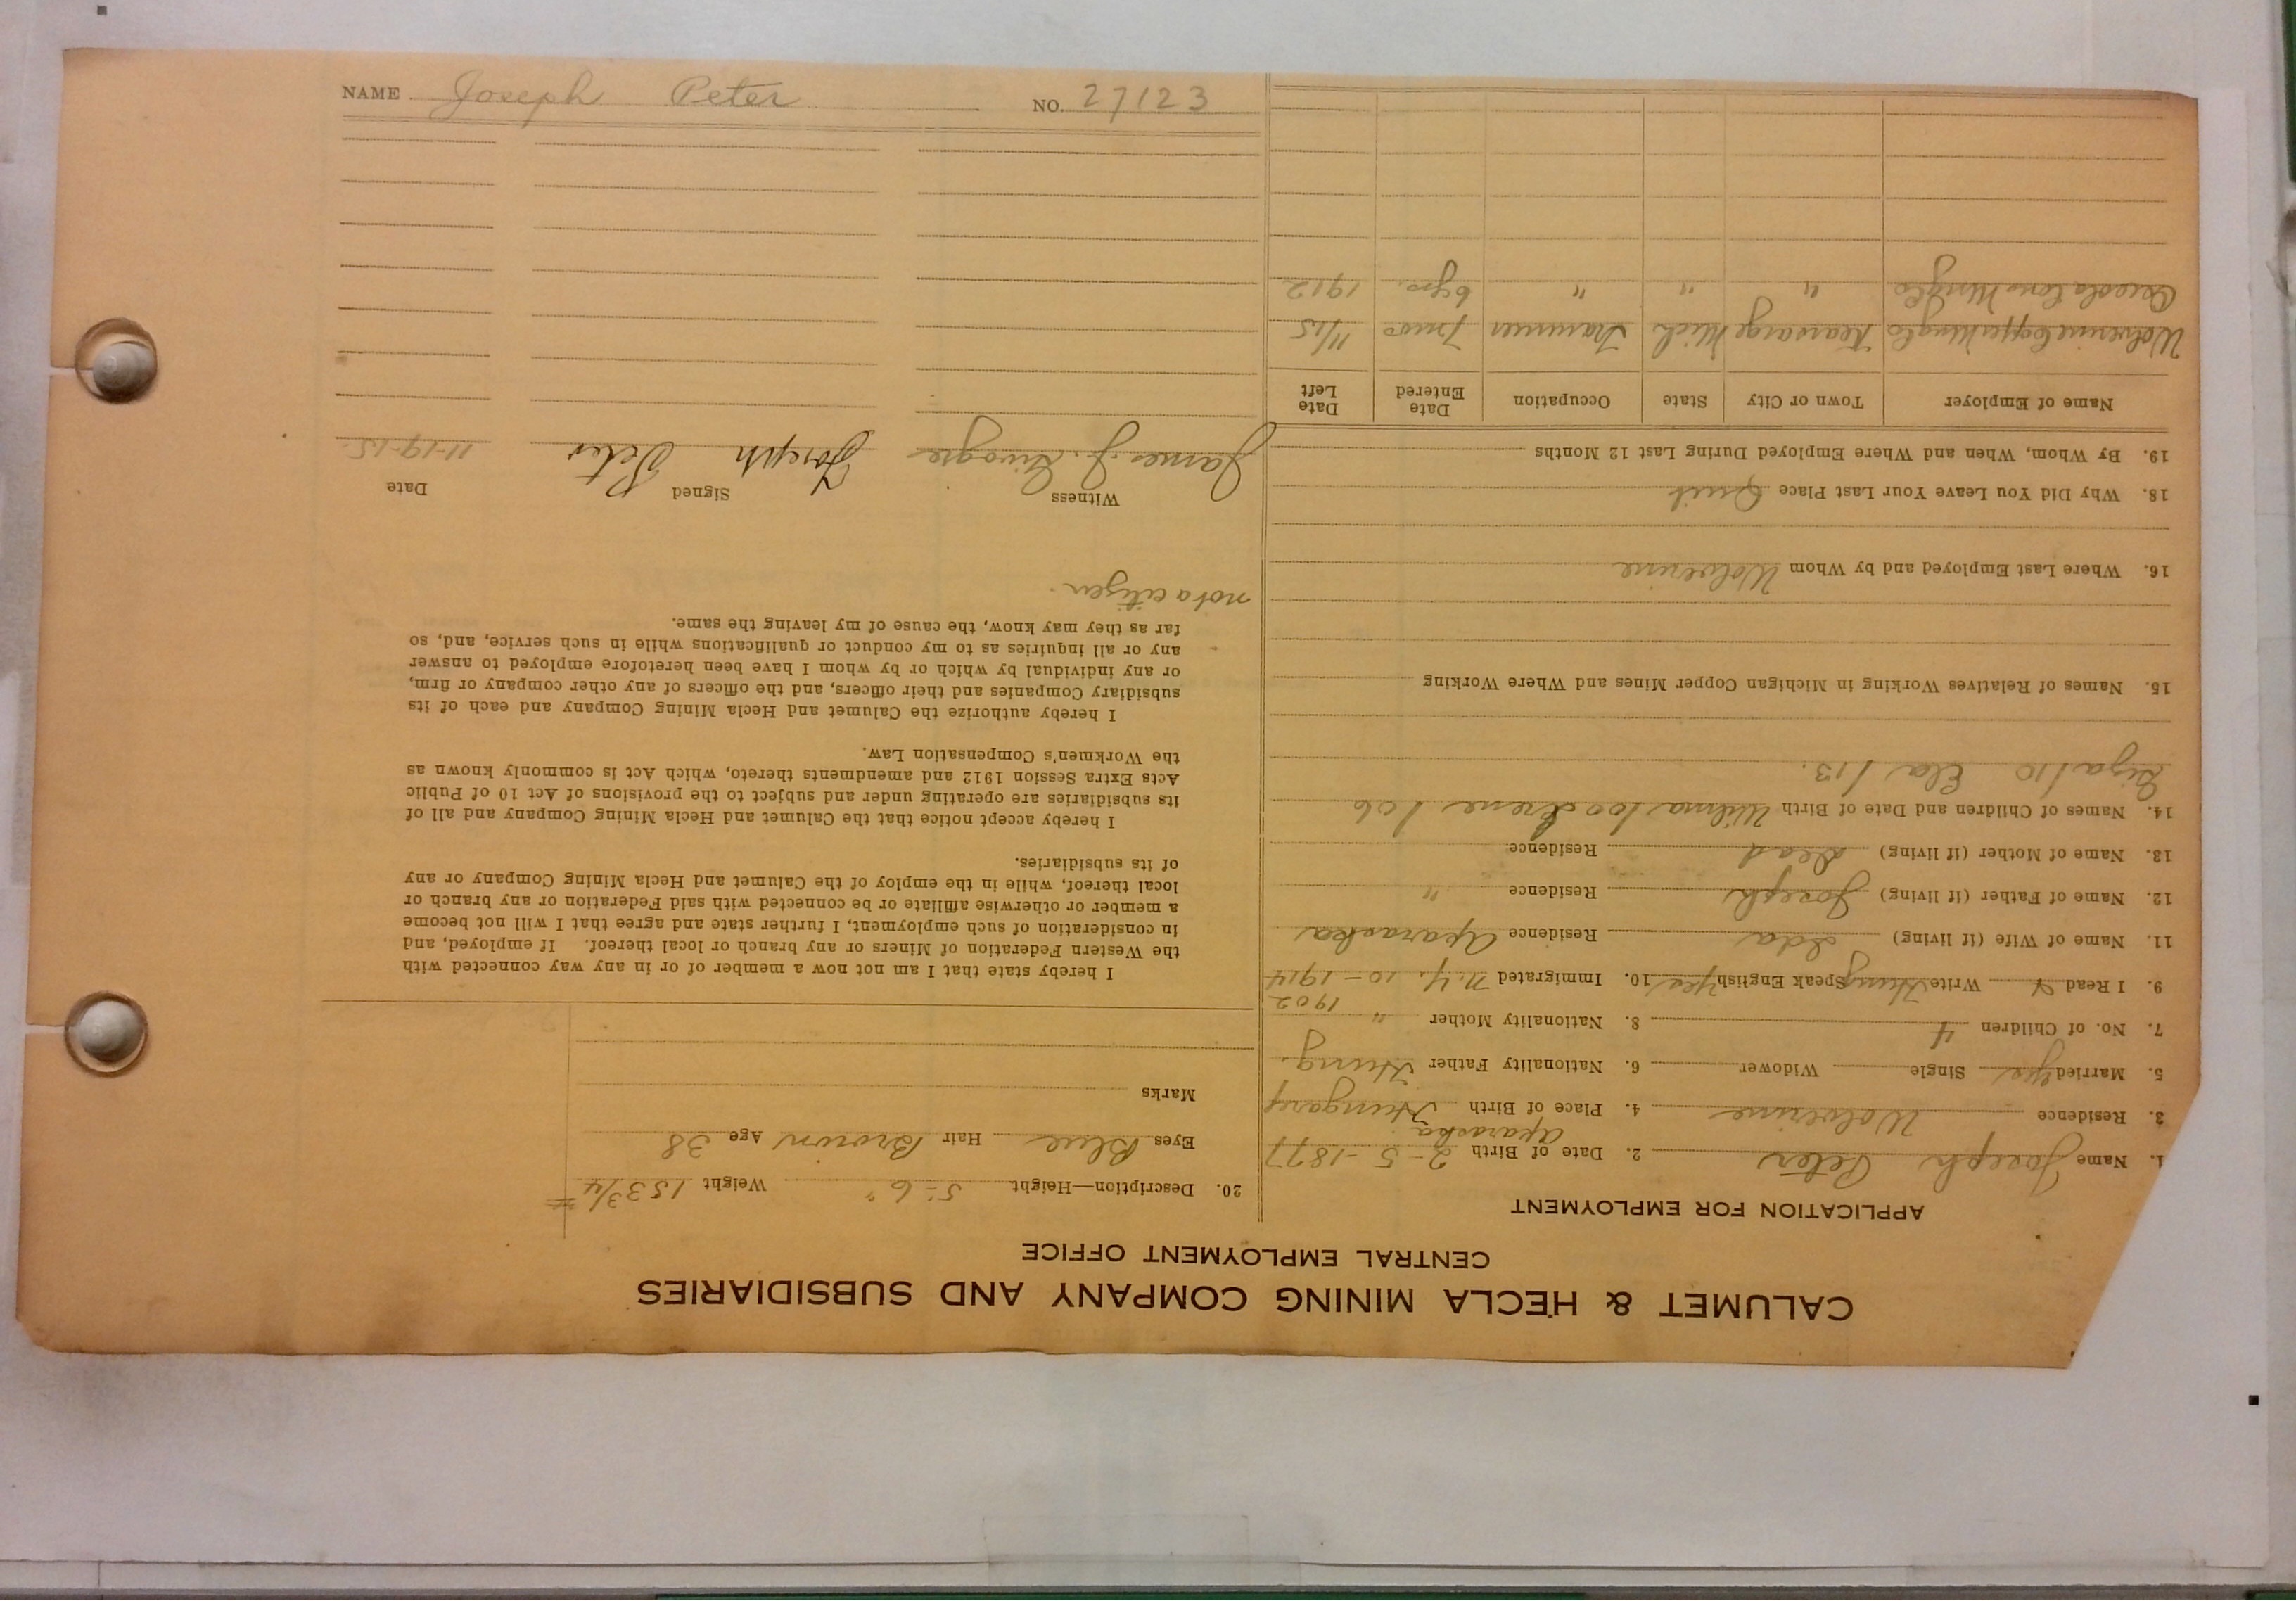 CALUMET & HECLA MINING COMPANY AND SUBSIDIARIES
CENTRAL EMPLOYMENT OFFICE
APPLICATION FOR EMPLOYMENT
1. Name Joseph Peter 2. Date of Birth 2-5-1877
Aparaska
3. Residence Wolverine 4. Place of Birth Hungary
5. Married Yes Single Widower 6. Nationality Father Hung.
7. No. of Children 4 8. Nationality Mother "
1902
9. I Read & Write Hung Speak English Yes 10. Immigrated N.Y. 10-1914
11. Name of Wife (if living) Ida Residence Aparaska
12. Name of Father (if living) Joseph Residence "
13. Name of Mother (if living) Dead Residence
14. Names of Children and Date of Birth Wilma / 00 Irene / 06
Giza / 10 Ela / 13.
15. Names of Relatives Working in Michigan Copper Mines and Where Working
16. Where Last Employed and by Whom Wolverine
18. Why Did You Leave Your Last Place Quit
19. By Whom, When and Where Employed During Last 12 Months
Name of Employer Town or City State Occupation Date Entered Date Left
Wolverine Copper Mng Co Kearsarge Mich Trammer 7 mos 11/15
Osceola Cons Mng Co " " " 6 yrs. 1912
20. Description—Height 5'-6" Weight 153 3/4 #
Eyes Blue Hair Brown Age 38
Marks
I hereby state that I am not now a member of or in any way connected with
the Western Federation of Miners or any branch or local thereof. If employed, and
in consideration of such employment, I further state and agree that I will not become
a member or otherwise affiliate or be connected with said Federation or any branch or
local thereof, while in the employ of the Calumet and Hecla Mining Company or any
of its subsidiaries.
I hereby accept notice that the Calumet and Hecla Mining Company and all of
its subsidiaries are operating under and subject to the provisions of Act 10 of Public
Acts Extra Session 1912 and amendments thereto, which Act is commonly known as
the Workmen's Compensation Law.
I hereby authorize the Calumet and Hecla Mining Company and each of its
subsidiary Companies and their officers, and the officers of any other company or firm,
or any individual by which or by whom I have been heretofore employed to answer
any or all inquiries as to my conduct or qualifications while in such service, and, so
far as they may know, the cause of my leaving the same.
not a citizen.
Witness Signed Date
James J. Joseph Peter 11-19-15.
NAME Joseph Peter NO. 27123